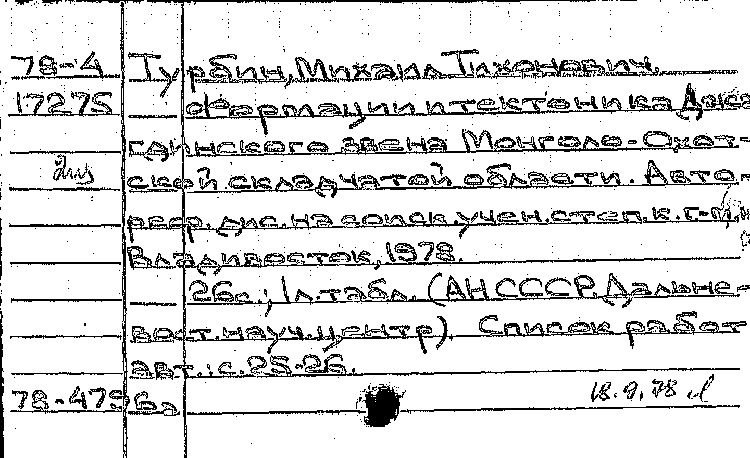 78-4 Турбин, Михаил Тихонович.
17275 Формации и тектоника Джа
гдинского звена Монголо-Охот-
ской складчатой области. Авто-
реф. дис. на соиск. учен. степ. к. г.-м. н
Владивосток, 1978.
26с.; 1 л. табл. (АН СССР. Дальне-
вост. науч. центр). Список работ
авт.: с. 25-26.
78-4796а
18.9.78